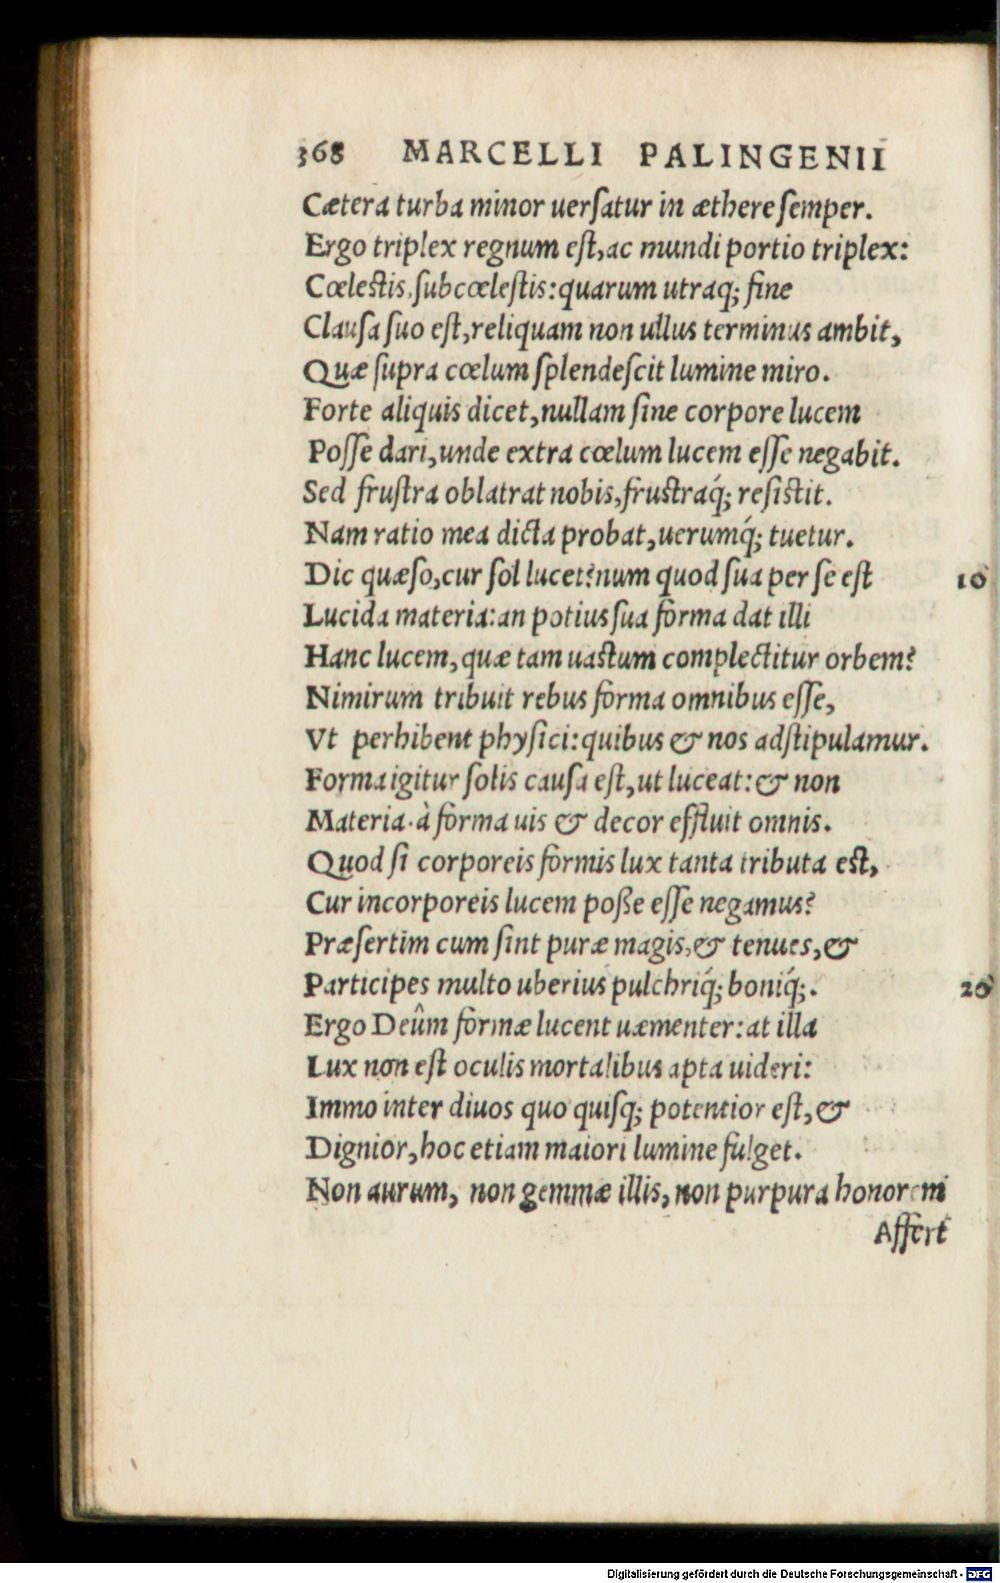 368 MARCELLI PALINGENII
Cætera turba minor uerſatur in æthere ſemper.
Ergo triplex regnum eſt, ac mundi portio triplex:
Cœleſtis, ſubcœleſtis: quarum utraq; fine
Clauſa ſuo eſt, reliquam non ullus terminus ambit,
Quæ ſupra cœlum ſplendeſcit lumine miro.
Forte aliquis dicet, nullam ſine corpore lucem
Poſſe dari, unde extra cœlum lucem eſſe negabit.
Sed fruſtra oblatrat nobis, fruſtraq́; reſiſtit.
Nam ratio mea dicta probat, uerumq́; tuetur.
Dic quæſo, cur ſol lucet? num quod ſua per ſe eſt 10
Lucida materia: an potius ſua forma dat illi
Hanc lucem, quæ tam uaſtum complectitur orbem?
Nimirum tribuit rebus forma omnibus eſſe,
Vt perhibent phyſici: quibus & nos adſtipulamur.
Forma igitur ſolis cauſa eſt, ut luceat: & non
Materia. à forma uis & decor effluit omnis.
Quod ſi corporeis formis lux tanta tributa eſt,
Cur incorporeis lucem poße eſſe negamus?
Præſertim cum ſint puræ magis, & tenues, &
Participes multo uberius pulchriq́; boniq́;. 20
Ergo Deûm formæ lucent uæmenter: at illa
Lux non eſt oculis mortalibus apta uideri:
Immo inter diuos quo quiſq; potentior eſt, &
Dignior, hoc etiam maiori lumine fulget.
Non aurum, non gemmæ illis, non purpura honorem
Affert
Digitalisierung gefördert durch die Deutsche Forschungsgemeinschaft - DFG